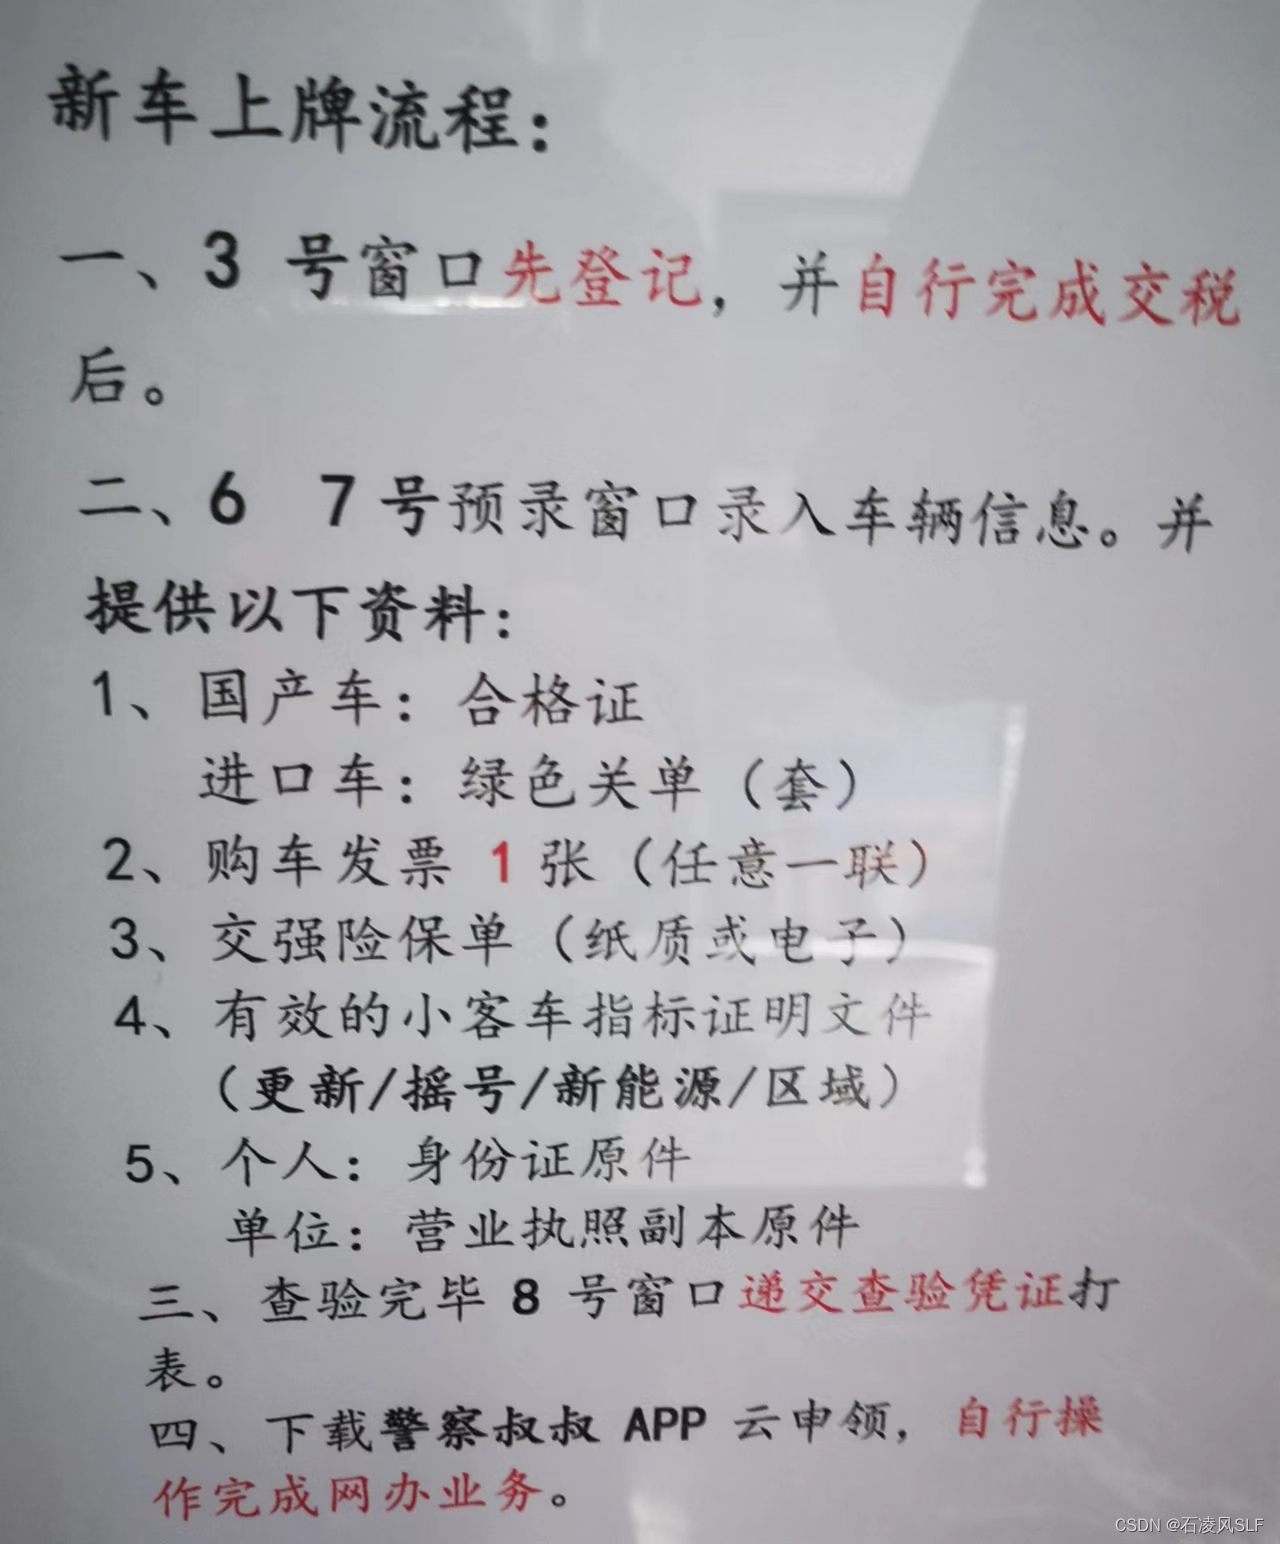 新车上牌流程：
一、3 号窗口先登记，并自行完成交税
后。
二、6 7 号预录窗口录入车辆信息。并
提供以下资料：
1、国产车：合格证
进口车：绿色关单（套）
2、购车发票 1 张（任意一联）
3、交强险保单（纸质或电子）
4、有效的小客车指标证明文件
（更新/摇号/新能源/区域）
5、个人：身份证原件
单位：营业执照副本原件
三、查验完毕 8 号窗口递交查验凭证打
表。
四、下载警察叔叔 APP 云申领，自行操
作完成网办业务。
CSDN @石凌风SLF